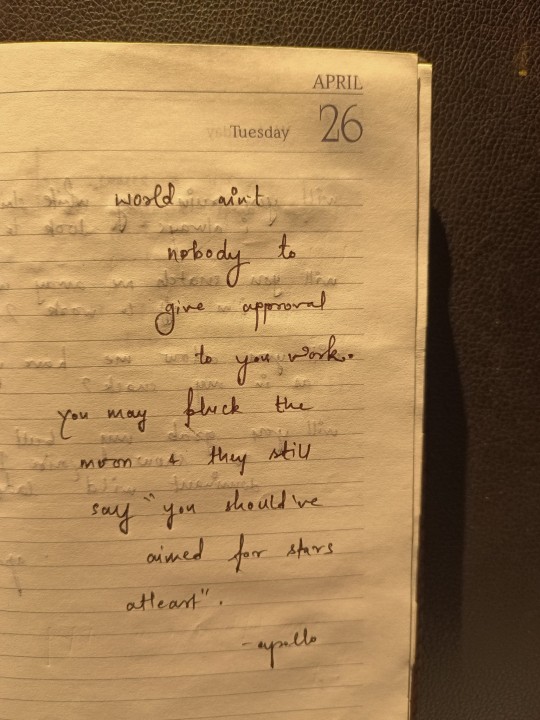 APRIL
Tuesday 26
world ain't
nobody to
give approval
to you work.
you may pluck the
moon & they still
say "you should've
aimed for stars
atleast".
-apollo